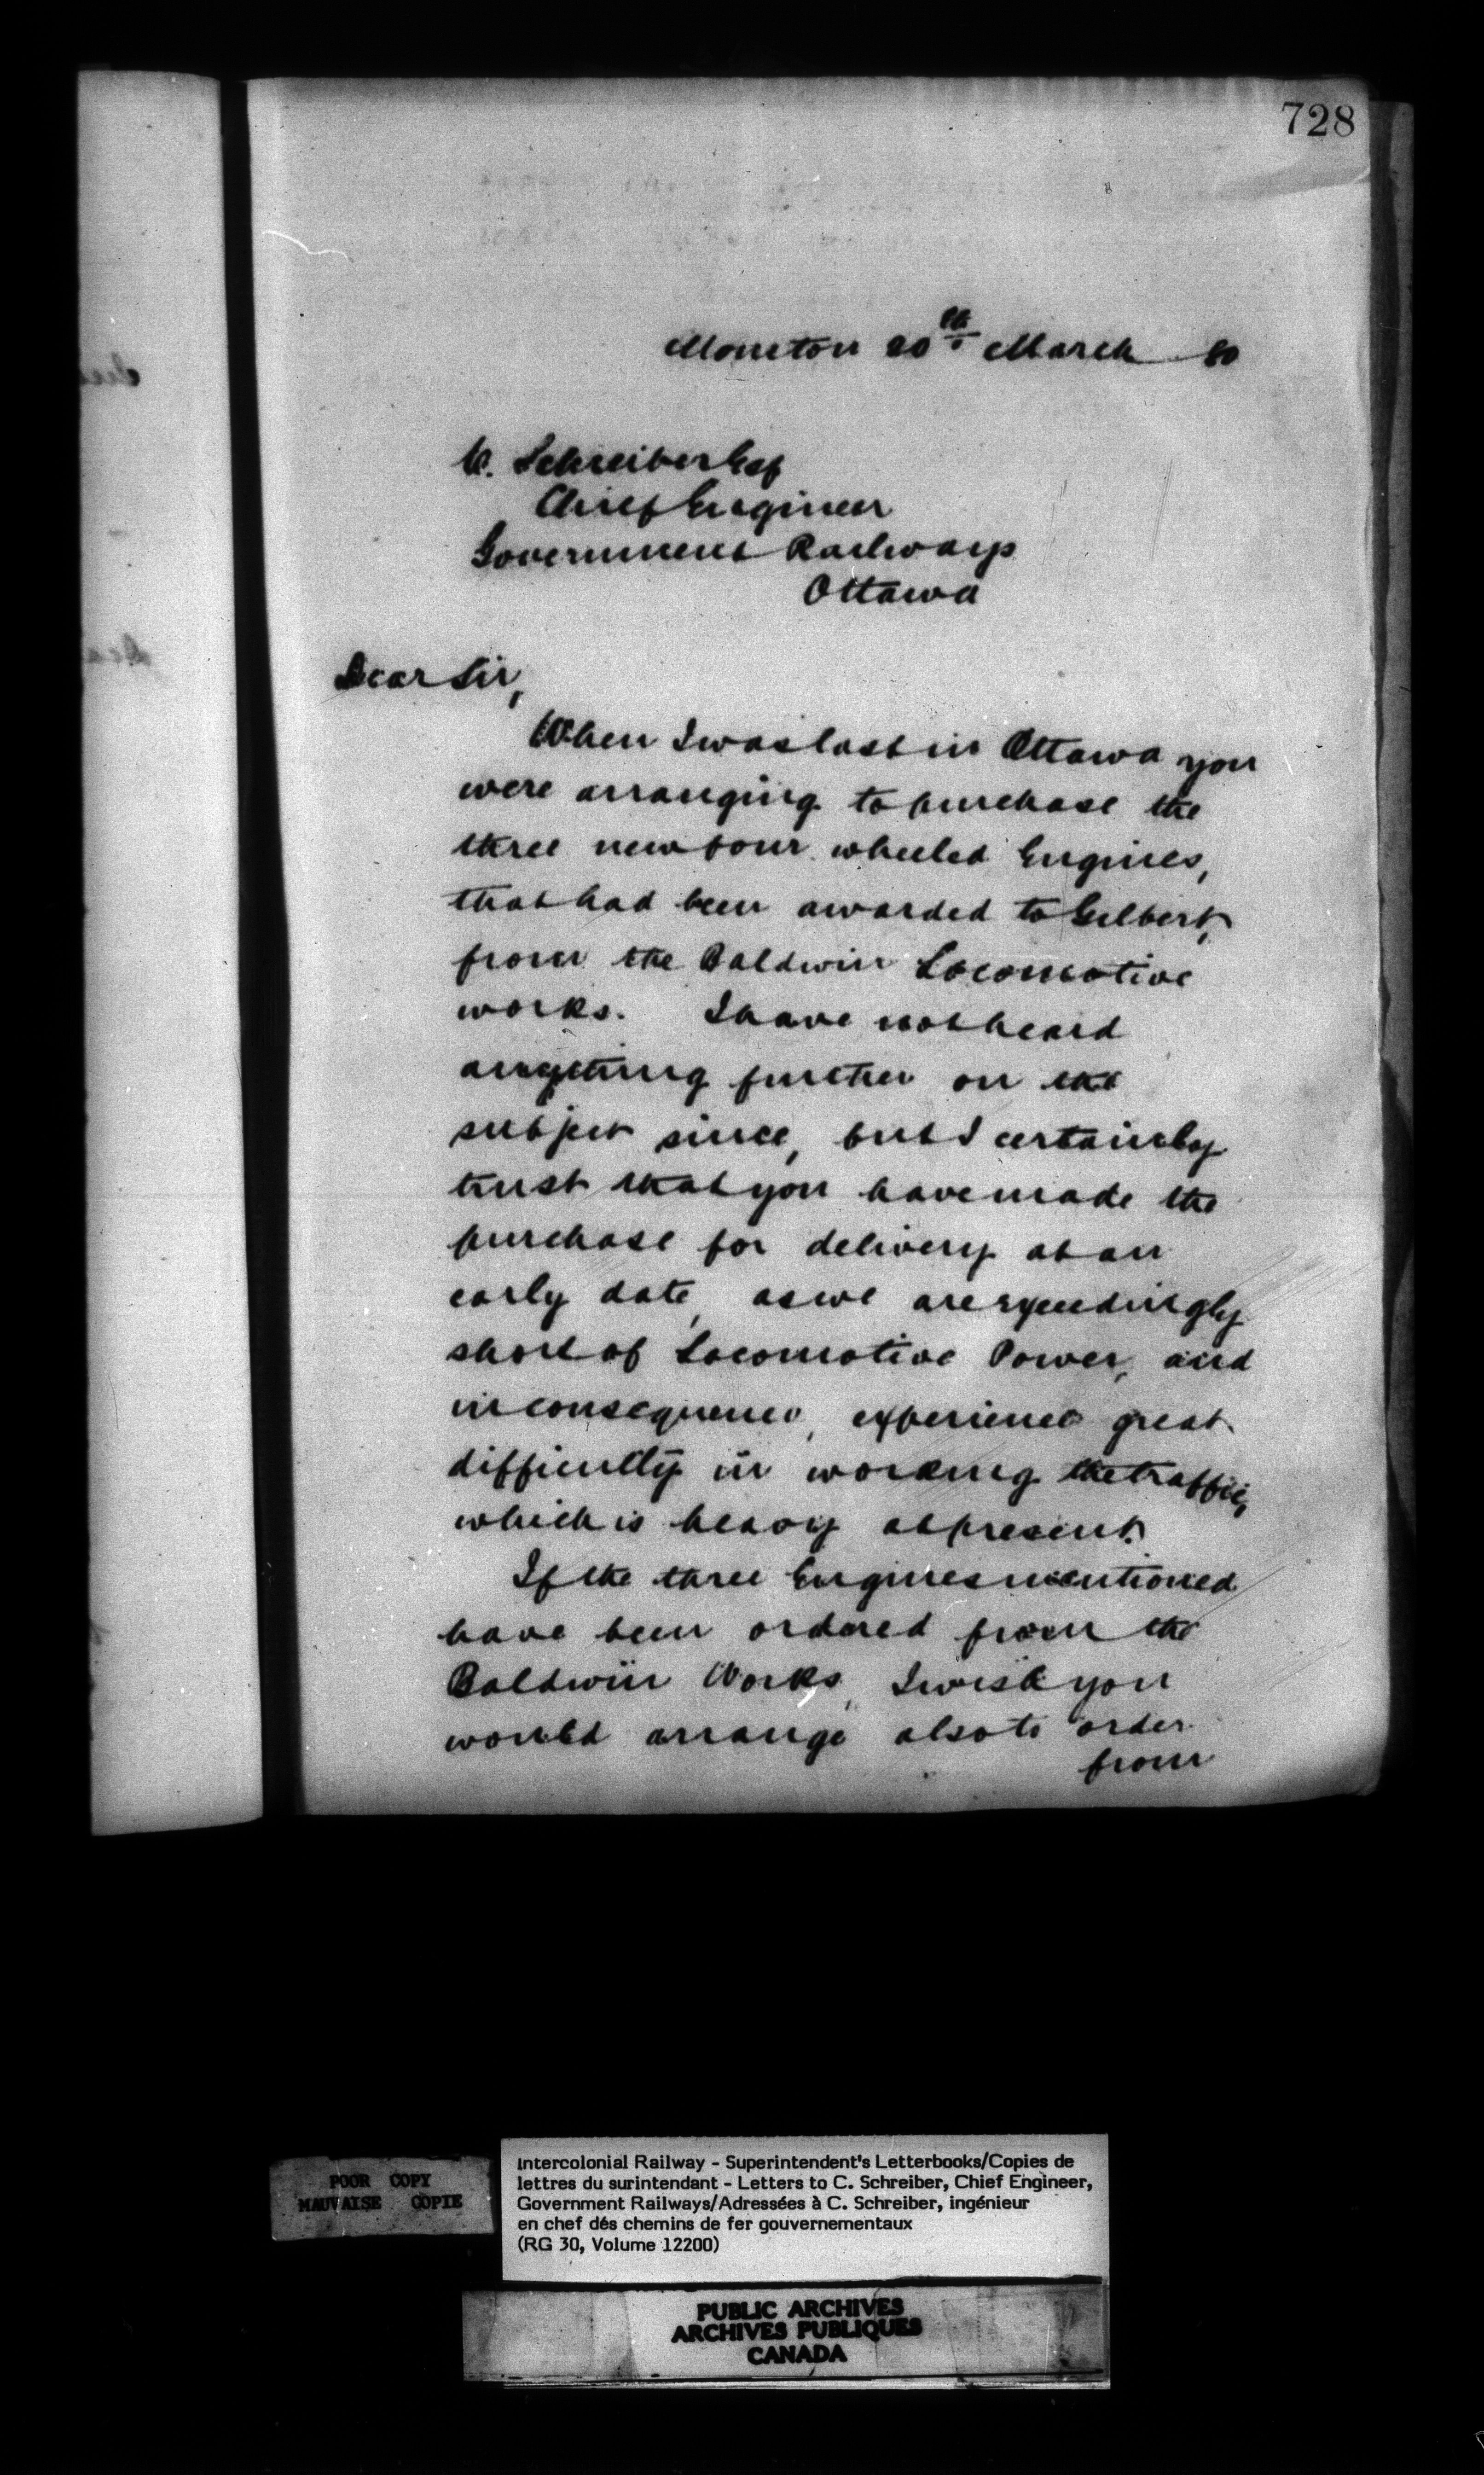 728
Moncton 20th March 80
C. Schreiber Esq
Chief Engineer
Government Railways
Ottawa
Dear Sir,
When I was last in Ottawa you
were arranging to purchase the
three new four wheeled Engines,
that had been awarded to Gilbert,
from the Baldwin Locomotive
works. I have not heard
anything further on the
subject since, but I certainly
trust that you have made the
purchase for delivery at an
early date, as we are exceedingly
short of Locomotive Power, and
in consequence, experience great
difficulty in working the traffic,
which is heavy at present.
If the three Engines mentioned
have been ordered from the
Baldwin Works, I wish you
would arrange also to order
from
POOR COPY
MAUVAISE COPIE
Intercolonial Railway - Superintendent's Letterbooks/Copies de
lettres du surintendant - Letters to C. Schreiber, Chief Engineer,
Government Railways/Adressées à C. Schreiber, ingénieur
en chef dés chemins de fer gouvernementaux
(RG 30, Volume 12200)
PUBLIC ARCHIVES
ARCHIVES PUBLIQUES
CANADA